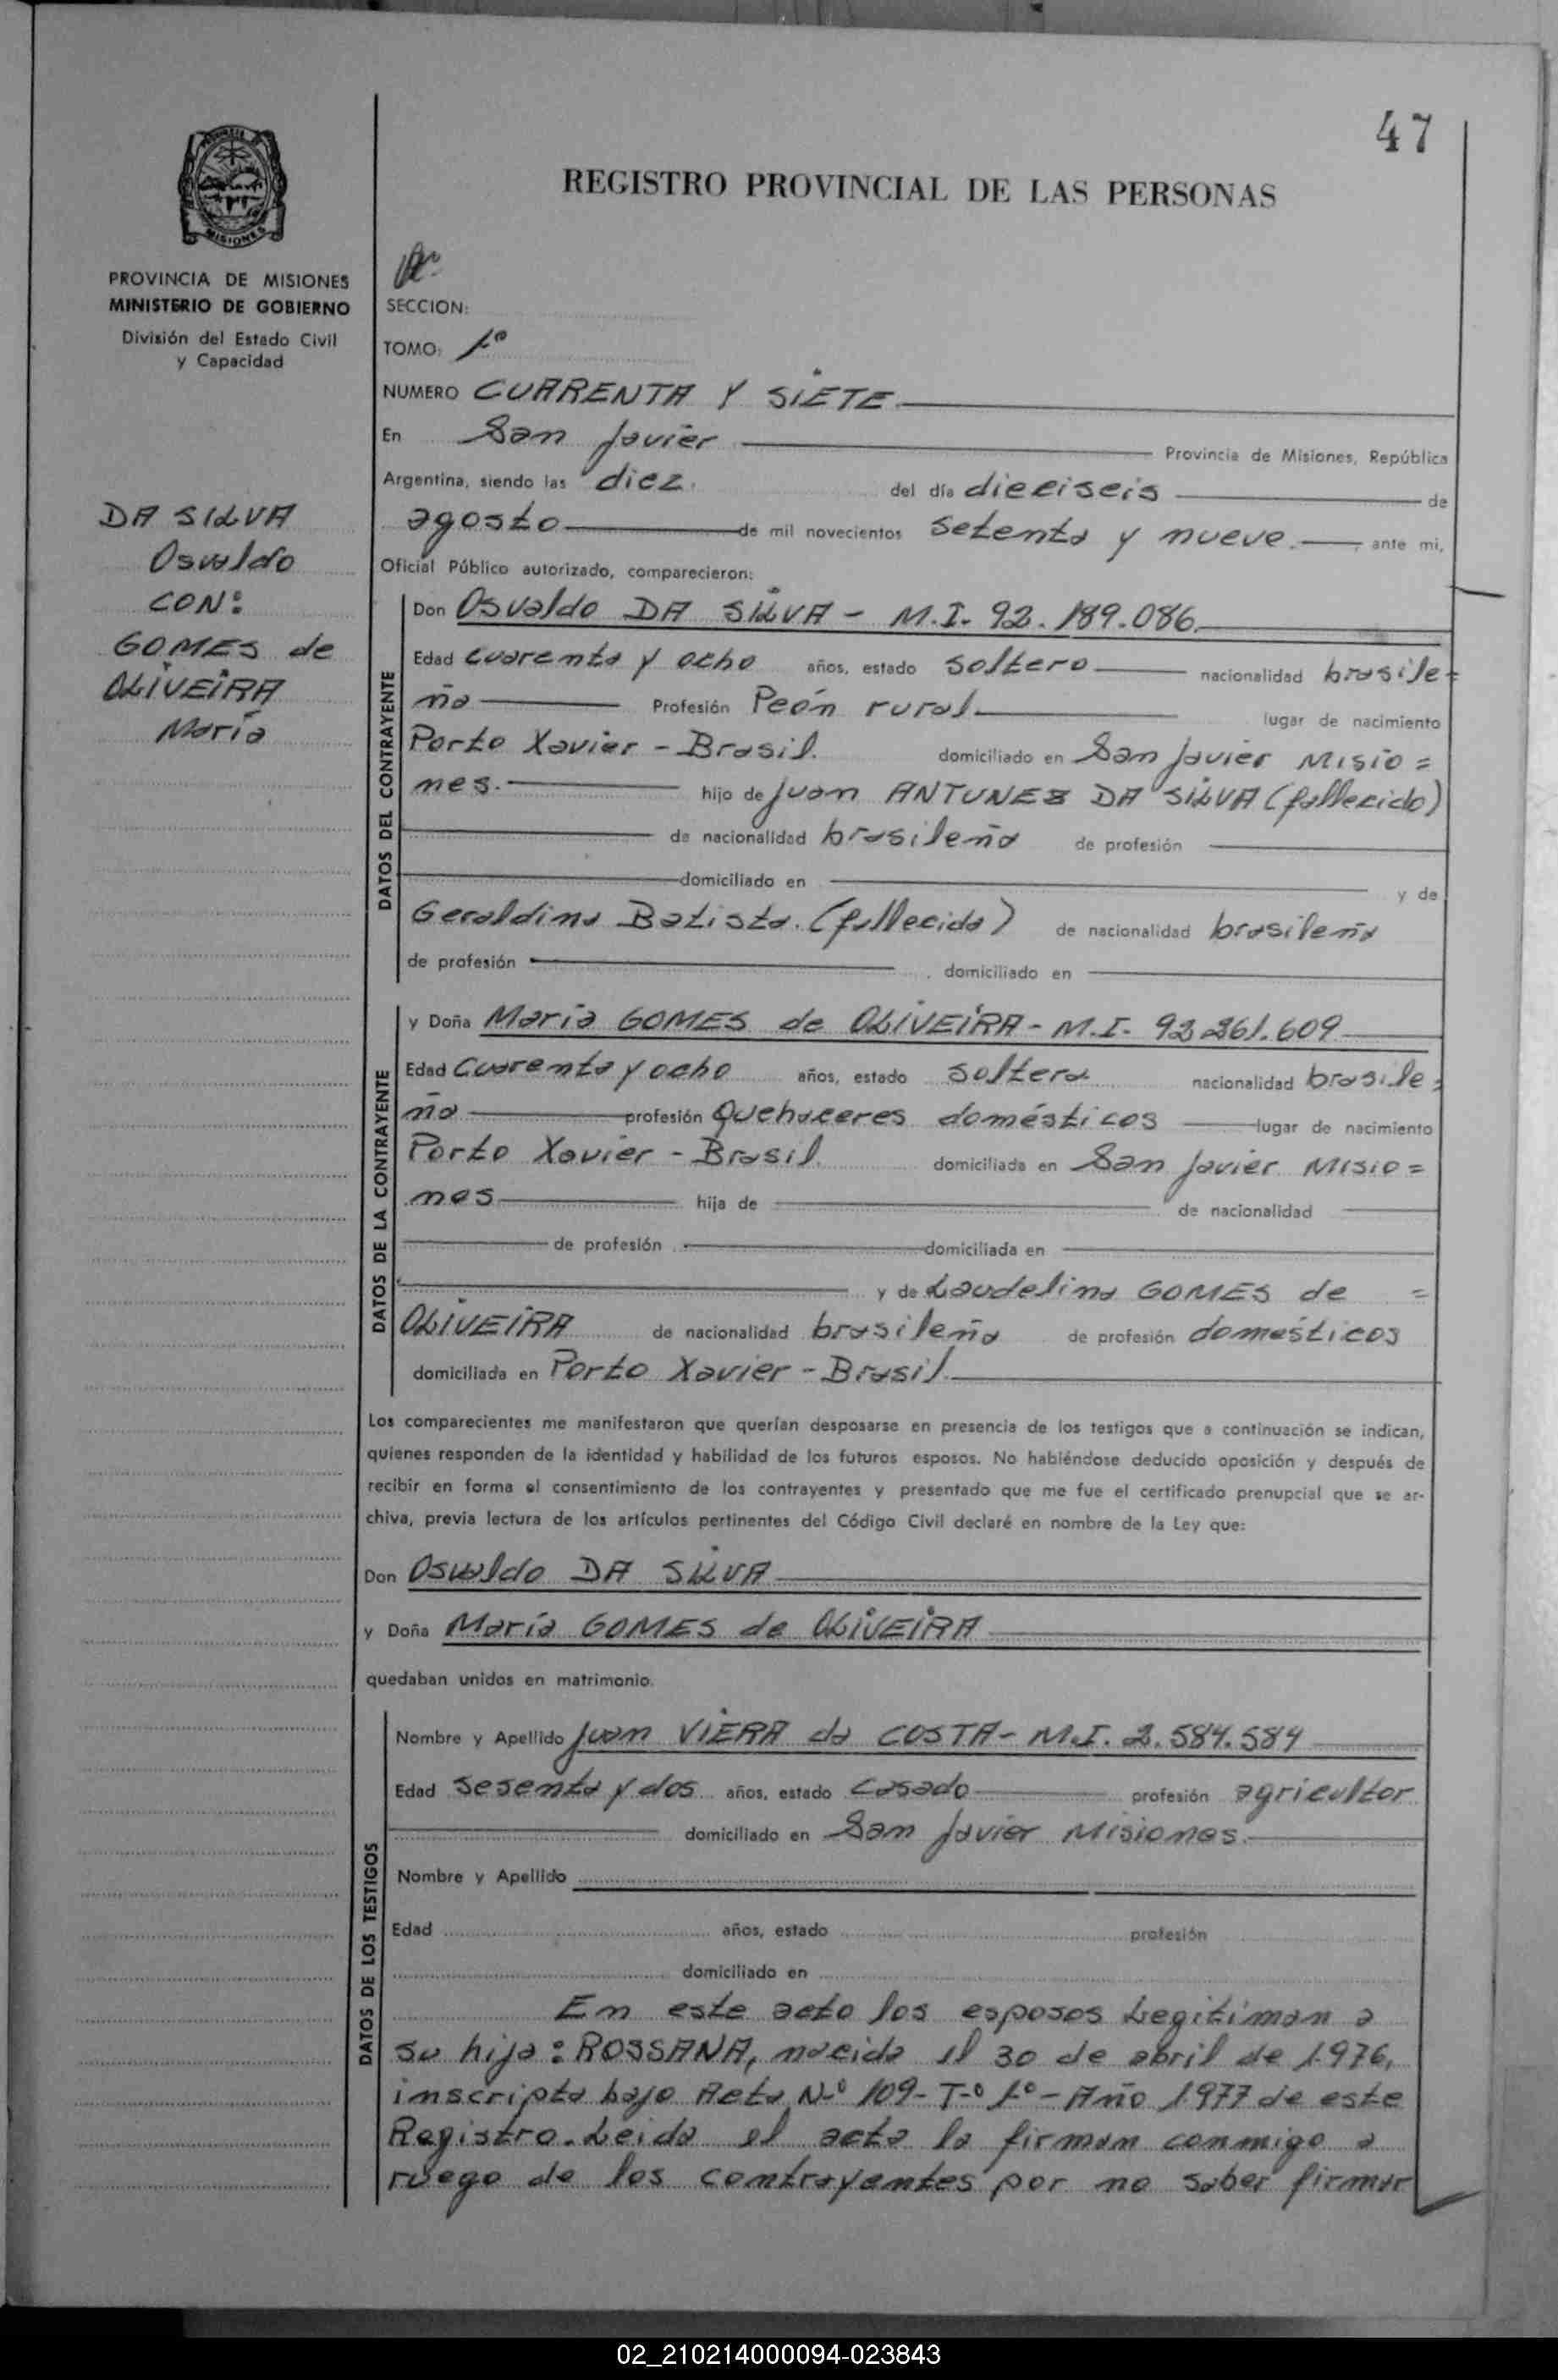 47
REGISTRO PROVINCIAL DE LAS PERSONAS
MISIONES
PROVINCIA DE MISIONES
MINISTERIO DE GOBIERNO
División del Estado Civil
y Capacidad
DA SILVA
Osvaldo
CON:
GOMES de
OLIVEIRA
María
SECCION:
TOMO: 1º
NUMERO CUARENTA Y SIETE
En San Javier Provincia de Misiones, República
Argentina, siendo las diez. del día dieciseis de
agosto de mil novecientos setenta y nueve. ante mi,
Oficial Público autorizado, comparecieron:
DATOS DEL CONTRAYENTE
Don Osvaldo DA SILVA - M.I. 92.189.086.
Edad cuarenta y ocho años, estado soltero nacionalidad brasile=
ña Profesión Peón rural lugar de nacimiento
Porto Xavier - Brasil. domiciliado en San Javier Misio=
nes. hijo de Juan ANTUNEZ DA SILVA (fallecido)
de nacionalidad brasileña de profesión
domiciliado en y de
Geraldina Batista. (fallecida) de nacionalidad brasileña
de profesión domiciliado en
DATOS DE LA CONTRAYENTE
y Doña María GOMES de OLIVEIRA - M.I. 92.261.609
Edad cuarenta y ocho años, estado soltera nacionalidad brasile=
ña profesión Quehaceres domésticos lugar de nacimiento
Porto Xavier - Brasil. domiciliada en San Javier Misio=
nes hija de de nacionalidad
de profesión domiciliada en
y de Laudelina GOMES de =
OLIVEIRA de nacionalidad brasileña de profesión domésticos
domiciliada en Porto Xavier - Brasil.
Los comparecientes me manifestaron que querían desposarse en presencia de los testigos que a continuación se indican,
quienes responden de la identidad y habilidad de los futuros esposos. No habiéndose deducido oposición y después de
recibir en forma el consentimiento de los contrayentes y presentado que me fue el certificado prenupcial que se ar-
chiva, previa lectura de los artículos pertinentes del Código Civil declaré en nombre de la Ley que:
Don Osvaldo DA SILVA
y Doña María GOMES de OLIVEIRA
quedaban unidos en matrimonio.
DATOS DE LOS TESTIGOS
Nombre y Apellido Juan VIERA da COSTA - M.I. 2.584.584
Edad sesenta y dos años, estado casado profesión agricultor
domiciliado en San Javier Misiones.
Nombre y Apellido
Edad años, estado profesión
domiciliado en
En este acto los esposos Legitiman a
su hija: ROSSANA, nacida el 30 de abril de 1.976,
inscripta bajo Acta Nº 109 - Tº 1º - Año 1977 de este
Registro. Leida el acta la firman conmigo a
ruego de los contrayentes por no saber firmar
02_210214000094-023843